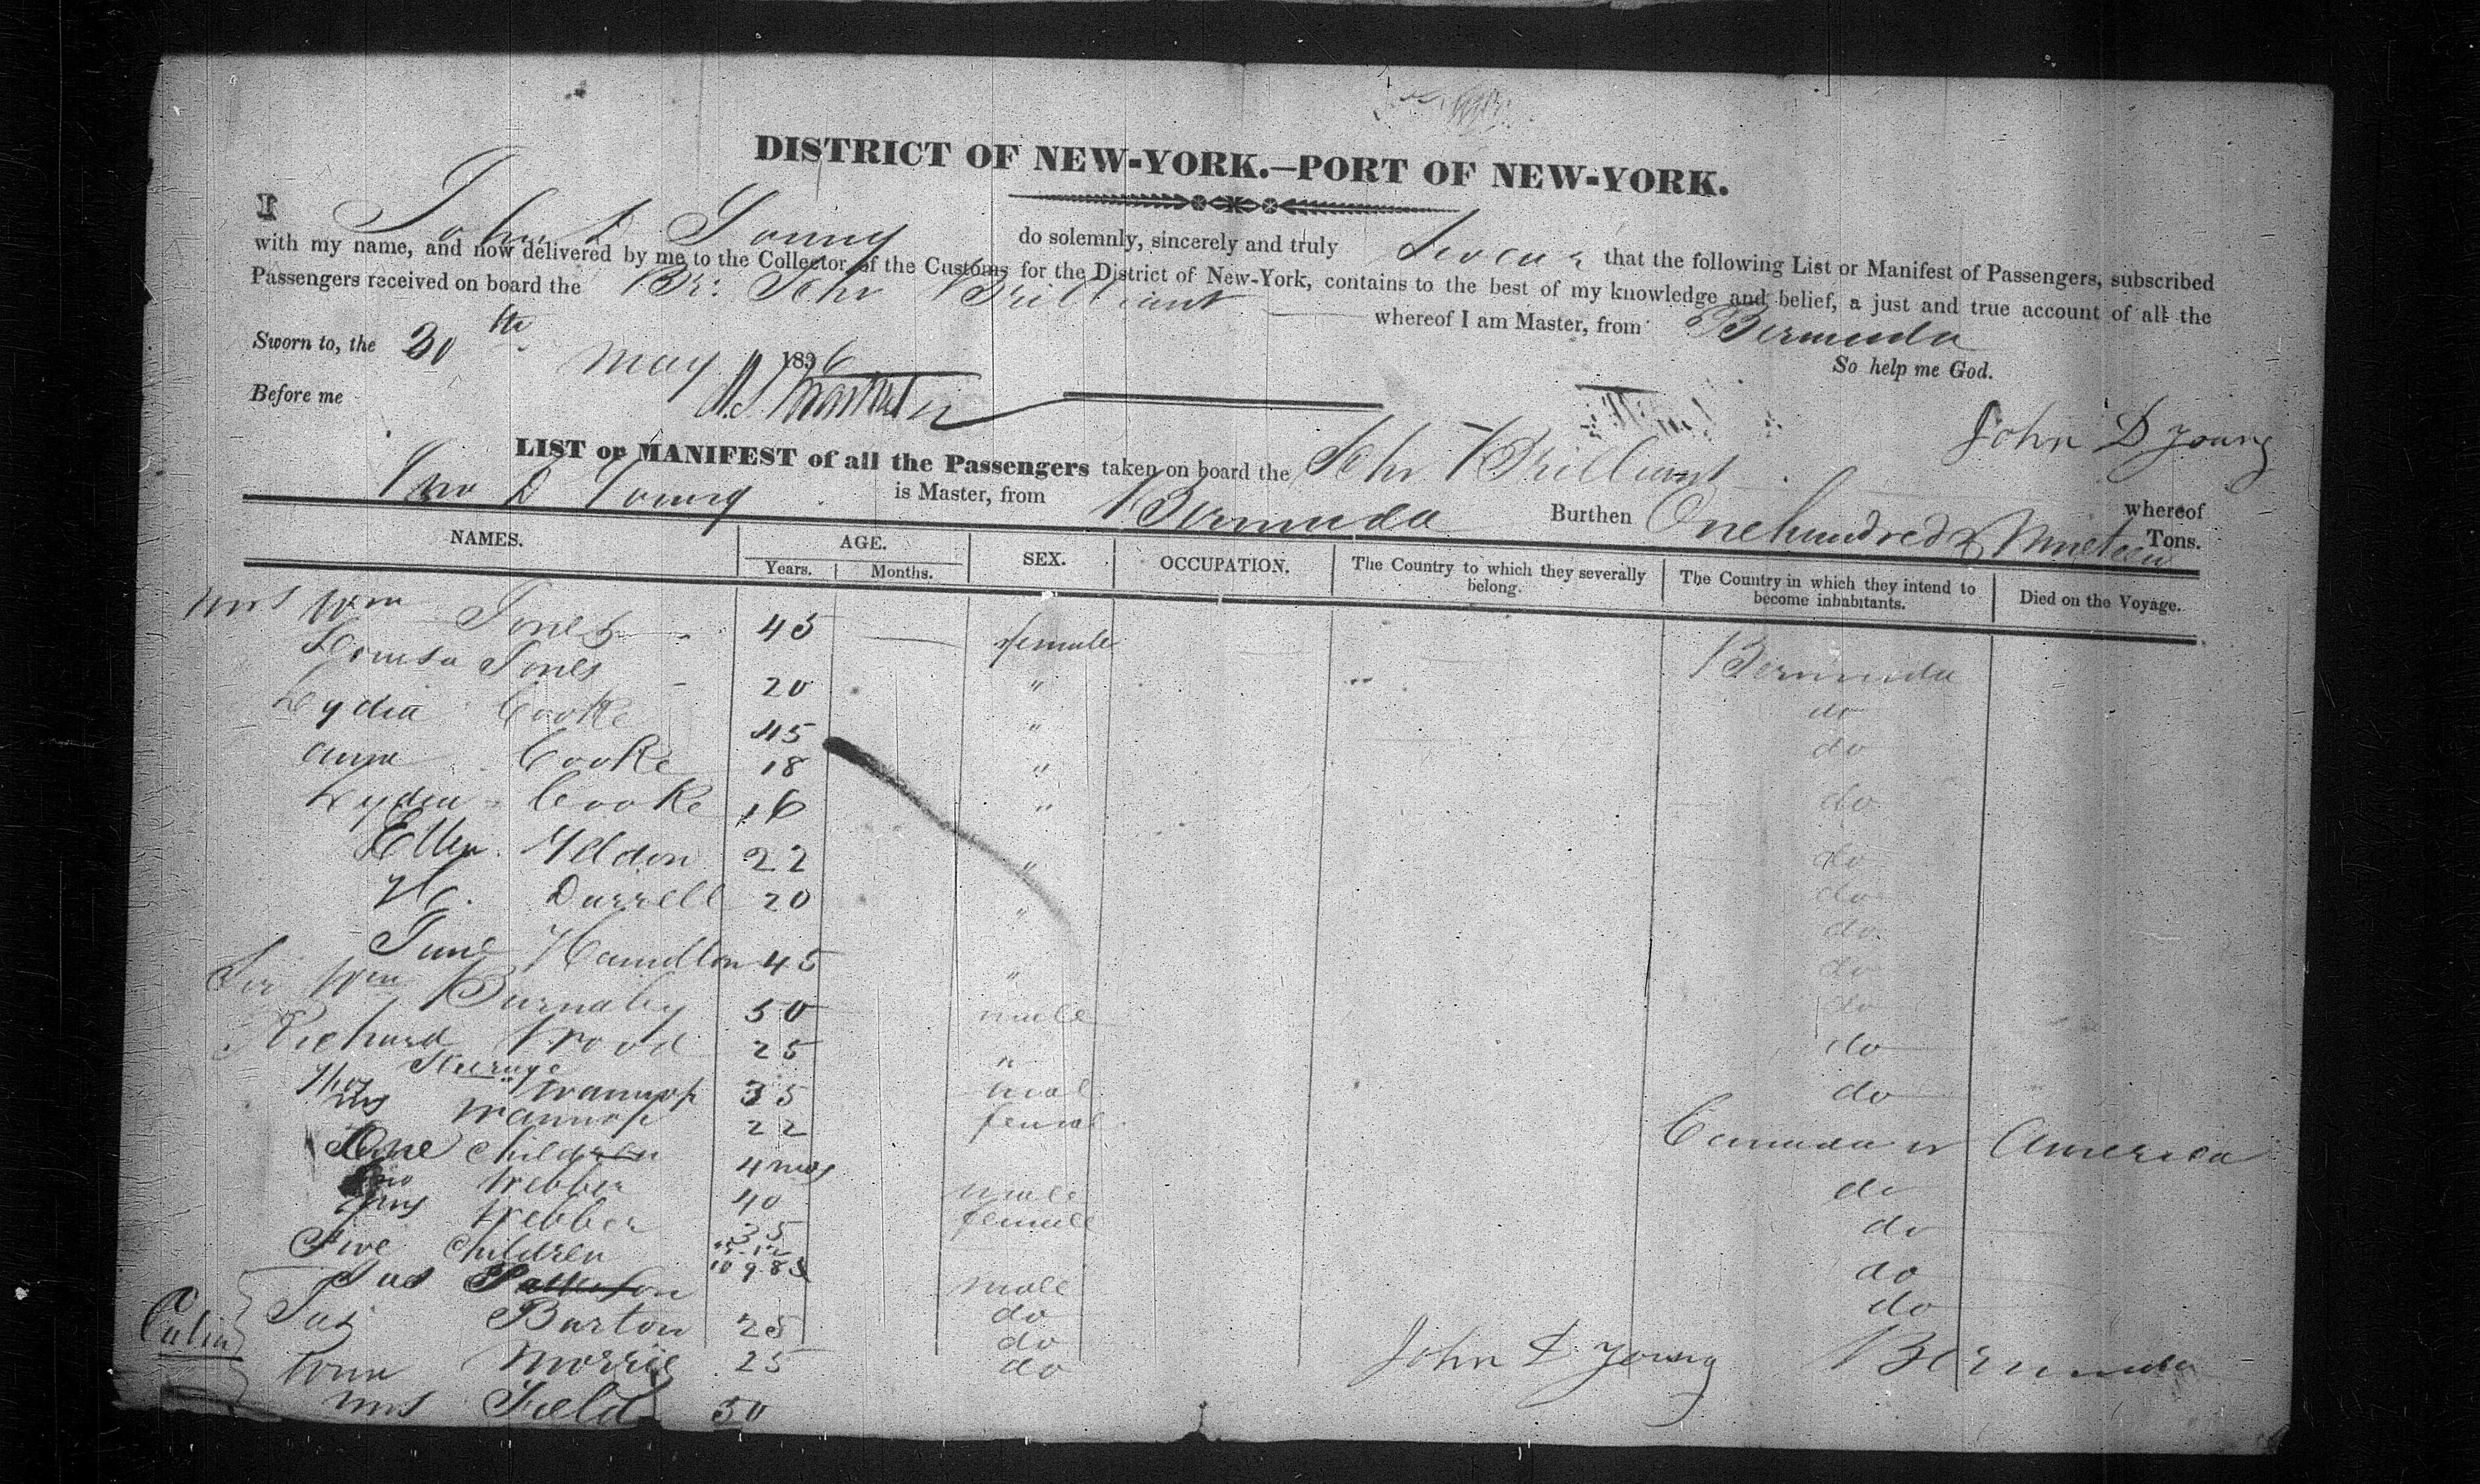 DISTRICT OF NEW-YORK.—PORT OF NEW-YORK.
I John D Young do solemnly, sincerely and truly Swear that the following List or Manifest of Passengers, subscribed
with my name, and now delivered by me to the Collector of the Customs for the District of New-York, contains to the best of my knowledge and belief, a just and true account of all the
Passengers received on board the Br: Schr Brilliant whereof I am Master, from Bermuda
Sworn to, the 20th May 1836 So help me God.
Before me John D Young
LIST or MANIFEST of all the Passengers taken on board the Schr Brilliant whereof
Jno D Young is Master, from Bermuda Burthen One hundred & Nineteen Tons.
NAMES. AGE. SEX. OCCUPATION. The Country to which they severally belong. The Country in which they intend to become inhabitants. Died on the Voyage.
Years. Months.
Mrs Wm Jones 45 female Bermuda
Louisa Jones 20 " do
Lydia Cooke 45 " do
Anne Cooke 18 " do
Lydia Cooke 16 " do
Ellen 22 " do
H. Darrell 20 " do
Jane Hamilton 45 " do
Sir Wm Burnaby 50 male do
Richard Wood 25 " do
Steerage
35 mal do
Mrs 22 femal
One children 4 mos Canada or America
Webber 40 male do
Mrs Webber 35 female do
Five Children 10 9 8 do
Jas male do
Cabin
Jas Barton 25 do
Morris 25 do John D Young Bermuda
Mrs Field 50 do